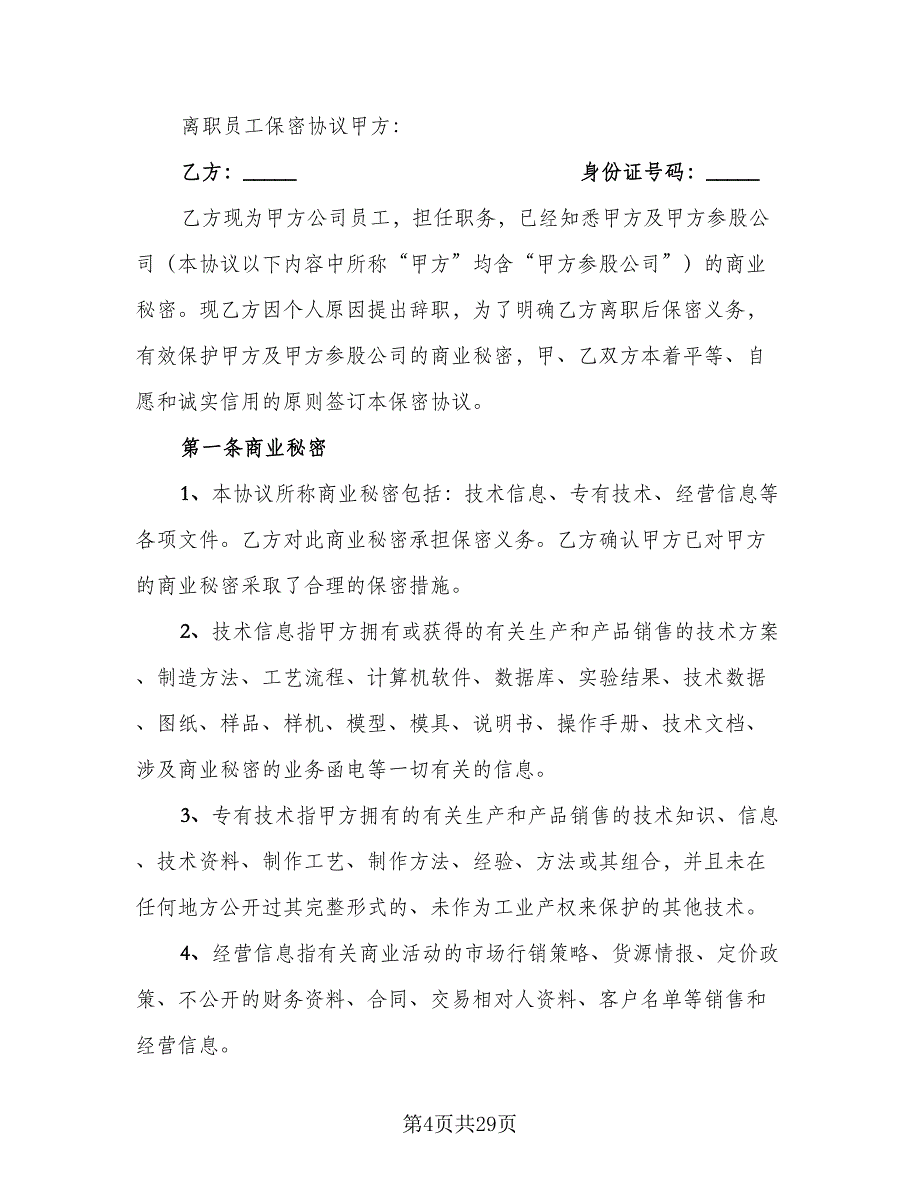 离职员工保密协议甲方：
乙方：_____ 身份证号码：_____
乙方现为甲方公司员工，担任职务，已经知悉甲方及甲方参股公
司（本协议以下内容中所称“甲方”均含“甲方参股公司”）的商业
秘密。现乙方因个人原因提出辞职，为了明确乙方离职后保密义务，
有效保护甲方及甲方参股公司的商业秘密，甲、乙双方本着平等、自
愿和诚实信用的原则签订本保密协议。
第一条商业秘密
1、本协议所称商业秘密包括：技术信息、专有技术、经营信息等
各项文件。乙方对此商业秘密承担保密义务。乙方确认甲方已对甲方
的商业秘密采取了合理的保密措施。
2、技术信息指甲方拥有或获得的有关生产和产品销售的技术方案
、制造方法、工艺流程、计算机软件、数据库、实验结果、技术数据
、图纸、样品、样机、模型、模具、说明书、操作手册、技术文档、
涉及商业秘密的业务函电等一切有关的信息。
3、专有技术指甲方拥有的有关生产和产品销售的技术知识、信息
、技术资料、制作工艺、制作方法、经验、方法或其组合，并且未在
任何地方公开过其完整形式的、未作为工业产权来保护的其他技术。
4、经营信息指有关商业活动的市场行销策略、货源情报、定价政
策、不公开的财务资料、合同、交易相对人资料、客户名单等销售和
经营信息。
第4页共29页